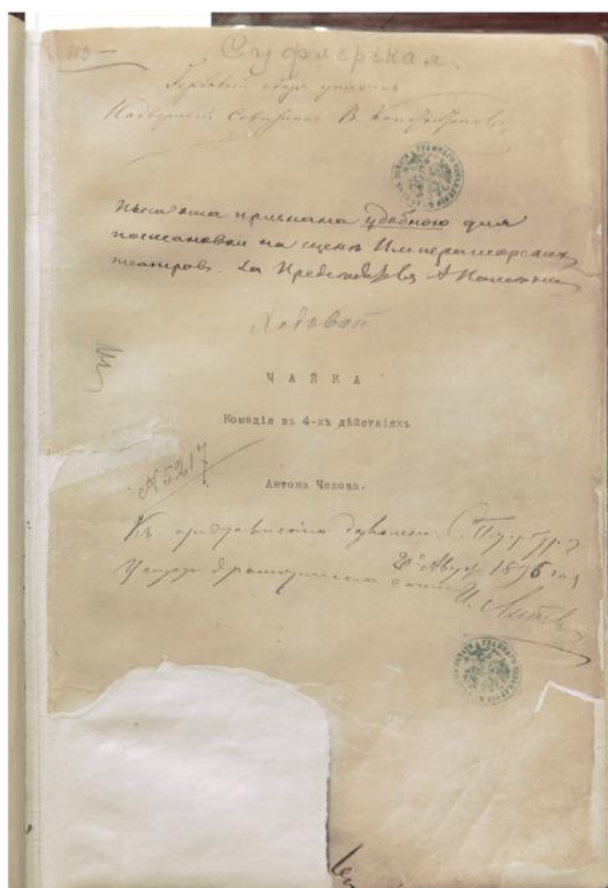 Суфлерская.
Гербовый сборъ уплаченъ
Надворный Совѣтникъ В.
Пьеса эта признана удобною для
постановки на сценѣ Императорскихъ
театровъ. За Предсѣдателя А
ЧАЙКА
Комедія въ 4-хъ дѣйствіяхъ
№ 5217
Антона Чехова.
Къ представленію дозволено. С. Петербургъ
20 Августа 1896 года
Цензоръ драматическихъ сочиненій И. Литвиновъ